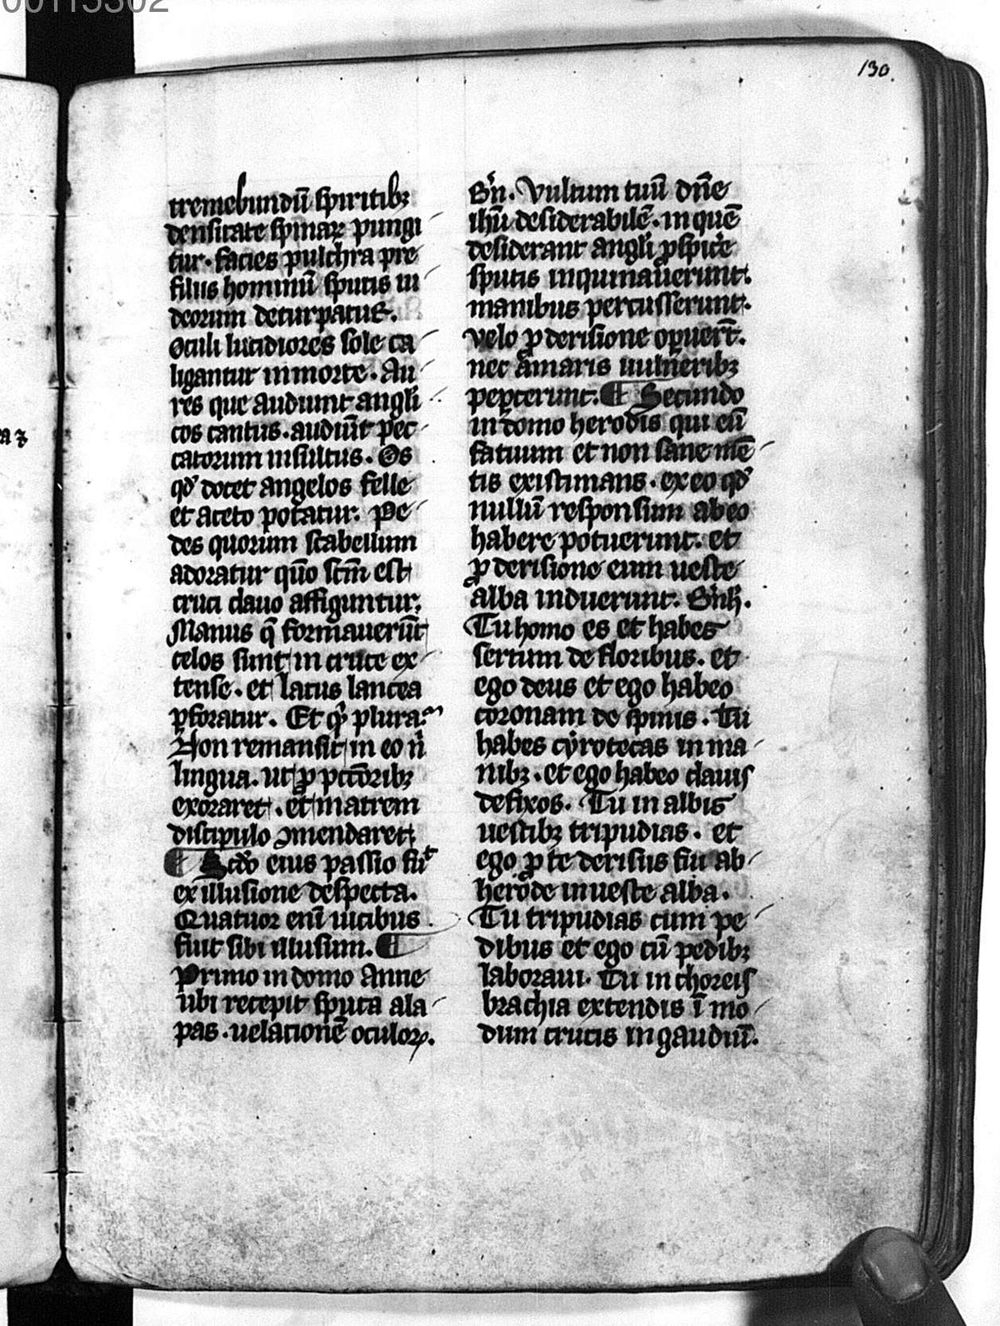 00115302
130
tremebundū spiritibꝫ
densitate spinaꝝ pungi
tur. facies pulchra pre
filiis hominū sputis iu
deorum deturpatur.
Oculi lucidiores sole ca
ligantur in morte. Au
res que audiunt angli
cos cantus. audiūt pec
catorum insultus. Os
qd̓ docet angelos felle
et aceto potatur. Pe
des quorum scabellum
adoratur qūo scm̄ est
cruci clauo affiguntur.
Manus q̄ formauerūt
celos sunt in cruce ex
tense. et latus lancea
ꝑforatur. Et qͥ plura.
Non remansit in eo nͥ
lingua. ut ꝓ pctōribꝫ
exoraret. et matrem
discipulo ꝯmendaret
¶ Scd̓o eius passio fuͭ
ex illusione despecta.
Quatuor enī uicibus
fuit sibi illusum. ¶
Primo in domo Anne
ubi recepit sputa ala
pas. uelationē oculoꝝ.
Bn̄. Vultum tuū dn̄e
ihū desiderabilē. in quē
desiderant angli ꝓspice
sputis inquinauerunt.
manibus percusserunt.
velo ꝓ derisione opuert̄.
nec amaris uulneribꝫ
pepcerunt. ¶ Secundo
in domo herodis qui eū
fatuum et non sane mē
tis existimans. ex eo qd̓
nullū responsum ab eo
habere potuerunt. et
ꝓ derisione eum ueste
alba induerunt. Bn̄h̵.
Tu homo es et habes
sertum de floribus. et
ego deus et ego habeo
coronam de spinis. Tu
habes cyrotecas in ma
nibꝫ. et ego habeo clauis
defixos. Tu in albis
uestibꝫ tripudias. et
ego ꝓ te derisus fui ab
herode in ueste alba.
Tu tripudias cum pe
dibus et ego cū pedibꝫ
laboraui. Tu in choreis
brachia extendis ī mo
dum crucis in gaudiū.